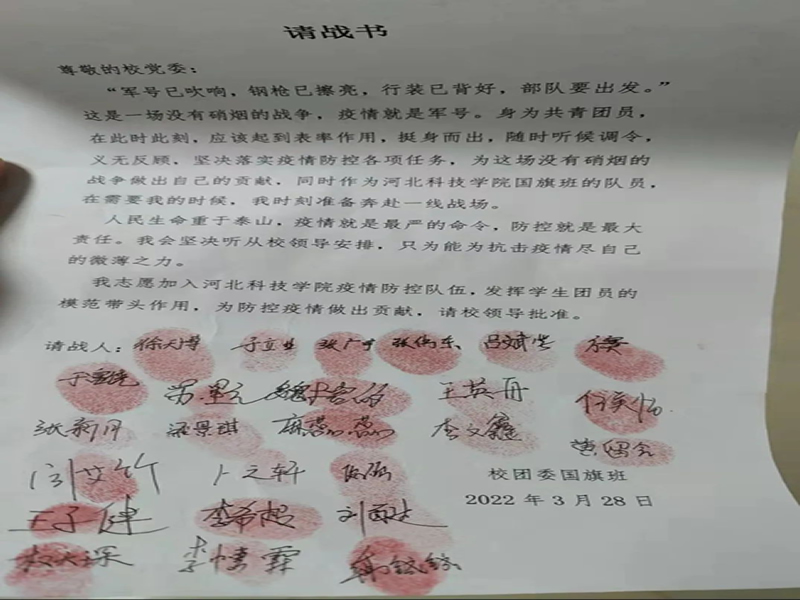 请战书
尊敬的校党委：
“军号已吹响，钢枪已擦亮，行装已背好，部队要出发。”
这是一场没有硝烟的战争，疫情就是军号。身为共青团员，
在此时此刻，应该起到表率作用，挺身而出，随时听候调令，
义无反顾，坚决落实疫情防控各项任务，为这场没有硝烟的
战争做出自己的贡献，同时作为河北科技学院国旗班的队员，
在需要我的时候，我时刻准备奔赴一线战场。
人民生命重于泰山，疫情就是最严的命令，防控就是最大
责任。我会坚决听从校领导安排，只为能为抗击疫情尽自己
的微薄之力。
我志愿加入河北科技学院疫情防控队伍，发挥学生团员的
模范带头作用，为防控疫情做出贡献，请校领导批准。
请战人：
王英舟
张新月 梁景琪
卜之轩
校团委国旗班
2022 年 3 月 28 日
王子健 李希超